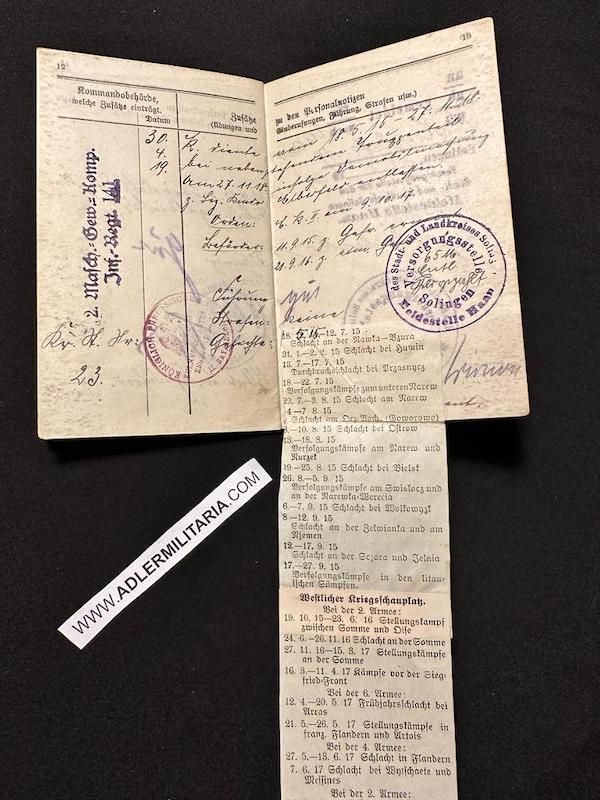 12
Kommandobehörde,
welche Zusätze einträgt.
Datum
Zusätze
(Übungen und
2. Masch.=Gew.=Komp.
Inf.-Regt 141
30.
4.
19.
K. diente
bei neben
am 27.11.18
Orden:
Führung
Strafen:
Gefechte:
23.
KÖNIGLICH PREUSSISCH
zu den Personalnotizen
Einberufungen, Führung, Strafen usw.)
vom 18.5.15 - 27.11.18
infolge Demobilmachung
entlassen.
gut
keine
des Stadt- und Landkreises Sol
Versorgungsstelle
6516
Solingen
Meldestelle Haan
18. 5. 15—12. 7. 15
Schlacht an der Rawka-Bzura
31. 1.—2. 2. 15 Schlacht bei Humin
13. 7.—17. 7. 15
Durchbruchschlacht bei Przasnysz
18.—22. 7. 15
Verfolgungskämpfe zum unteren Narew
23. 7.—3. 8. 15 Schlacht am Narew
4.—7. 8. 15
Schlacht am Orz-Bach. (Goworowo)
8.—10. 8. 15 Schlacht bei Ostrow
13.—18. 8. 15
Verfolgungskämpfe am Narew und
Nurzek
19.—25. 8. 15 Schlacht bei Bielsk
26. 8.—5. 9. 15
Verfolgungskämpfe am Swislocz und
an der Narewka-Werecia
6.—7. 9. 15 Schlacht bei Wolkowyzk
8.—12. 9. 15
Schlacht an der Zelwianka und am
Njemen
12.—17. 9. 15
Schlacht an der Sczara und Jelnia
17.—27. 9. 15
Verfolgungskämpfe in den litau-
ischen Sümpfen.
Westlicher Kriegsschauplatz.
Bei der 2. Armee:
19. 10. 15—23. 6. 16 Stellungskampf
zwischen Somme und Oise
24. 6.—26. 11. 16 Schlacht an der Somme
27. 11. 16—15. 3. 17 Stellungskämpfe
an der Somme
16. 3.—11. 4. 17 Kämpfe vor der Sieg-
fried-Front
Bei der 6. Armee:
12. 4.—20. 5. 17 Frühjahrsschlacht bei
Arras
21. 5.—26. 5. 17 Stellungskämpfe in
franz. Flandern und Artois
Bei der 4. Armee:
27. 5.—13. 6. 17 Schlacht in Flandern
7. 6. 17 Schlacht bei Wytschaete und
Messines
Bei der 2. Armee:
WWW.ADLERMILITARIA.COM